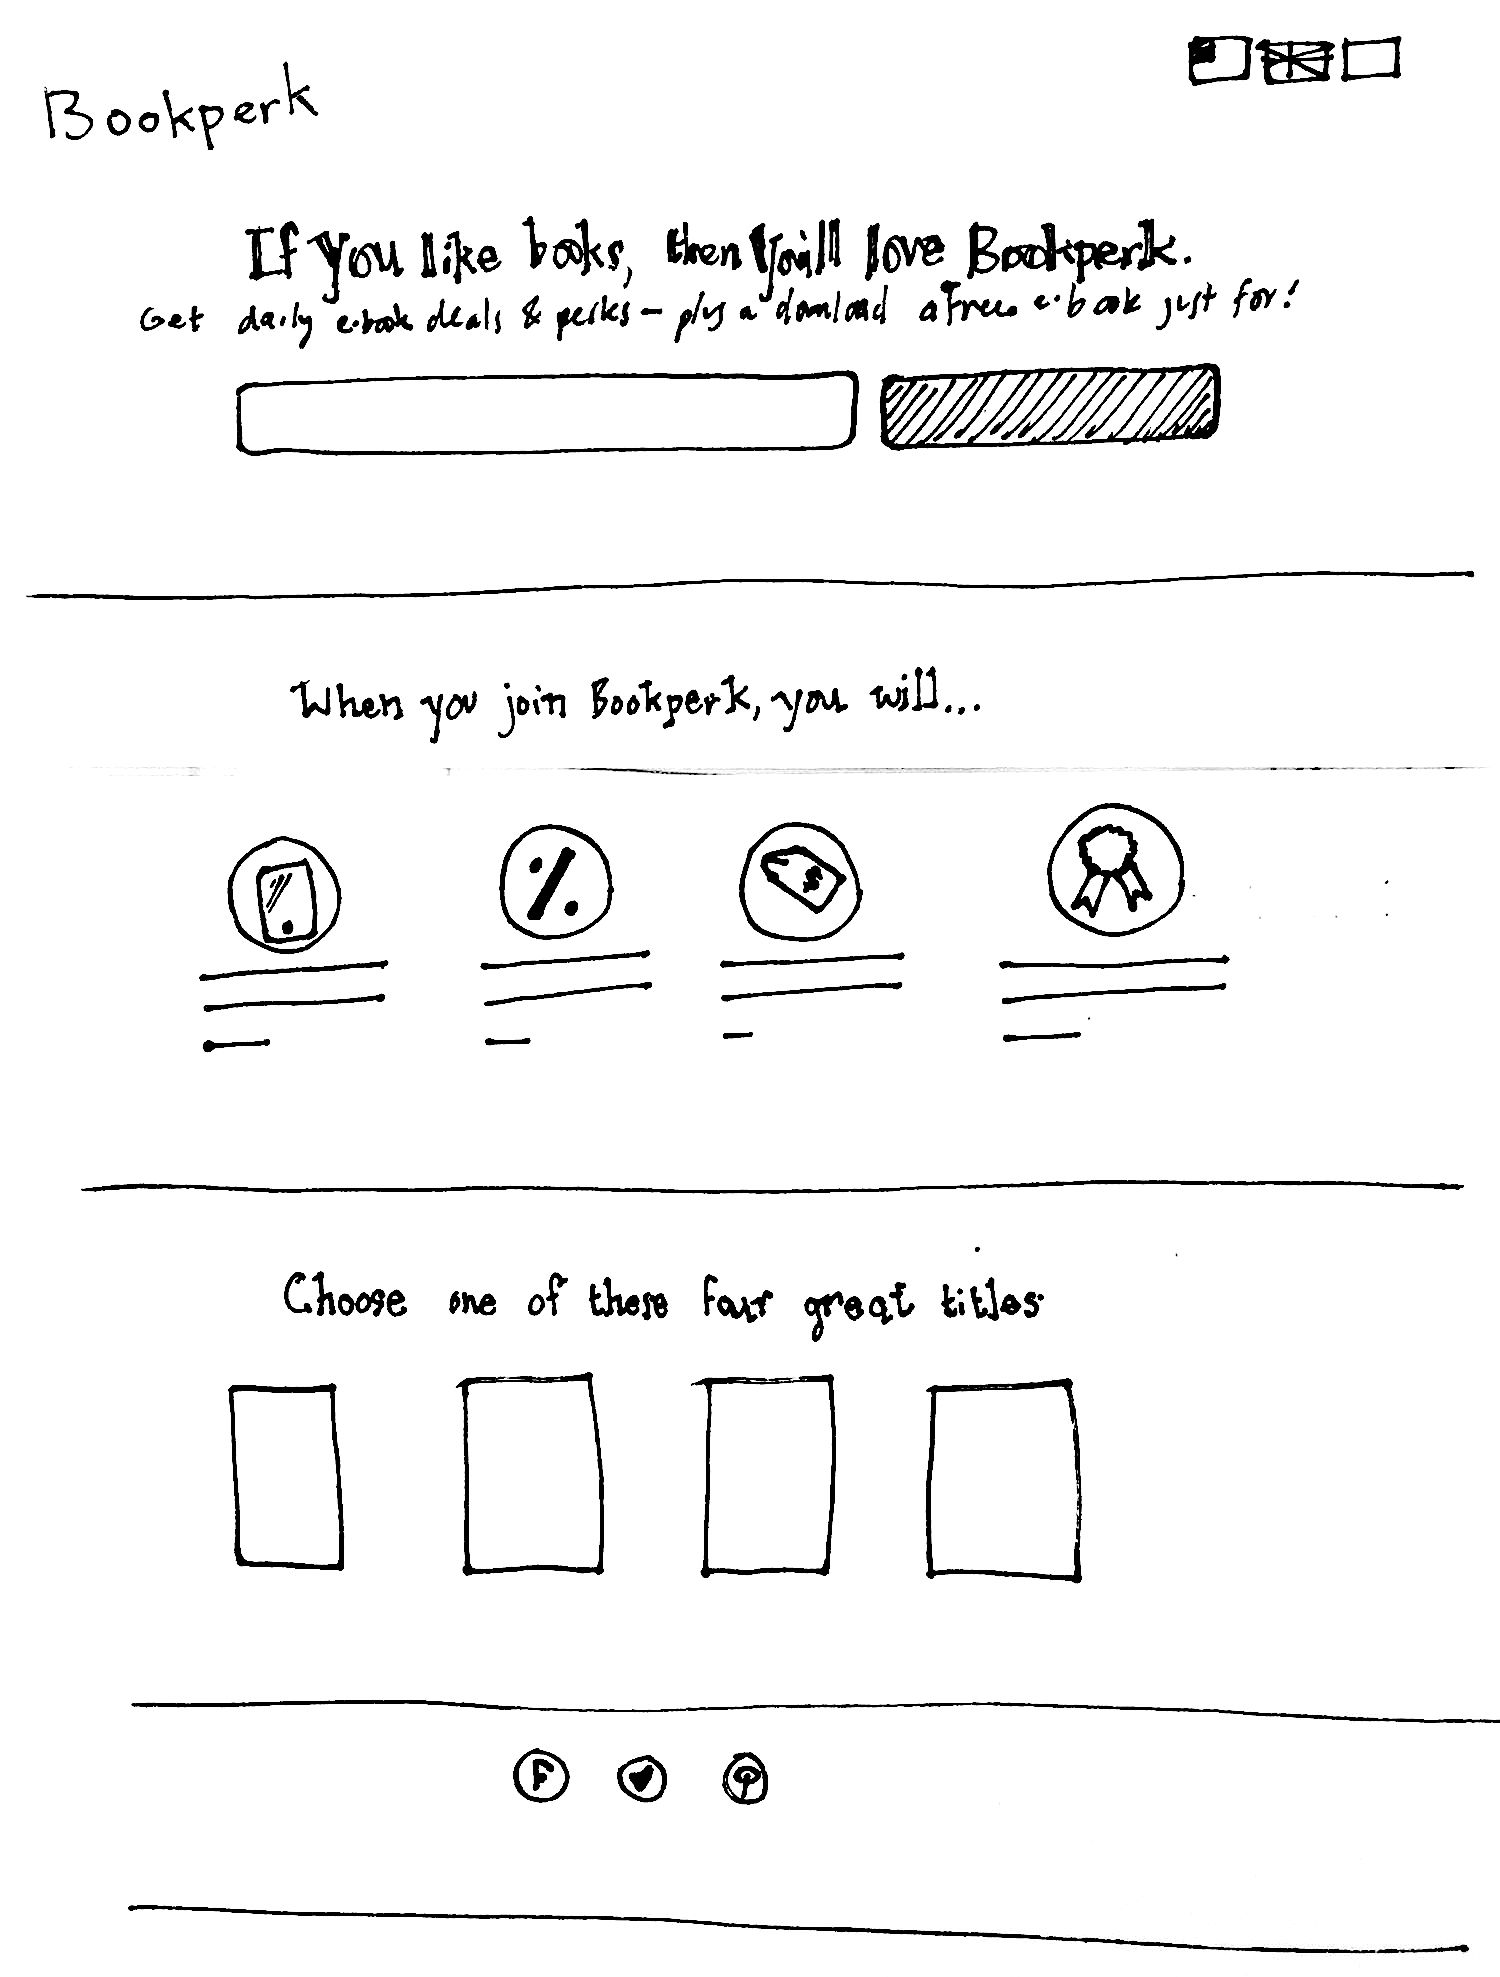 Bookperk
If you like books, then you'll love Bookperk.
Get daily e-book deals & perks - plus a download a free e-book just for!
When you join Bookperk, you will...
%
$
Choose one of these four great titles